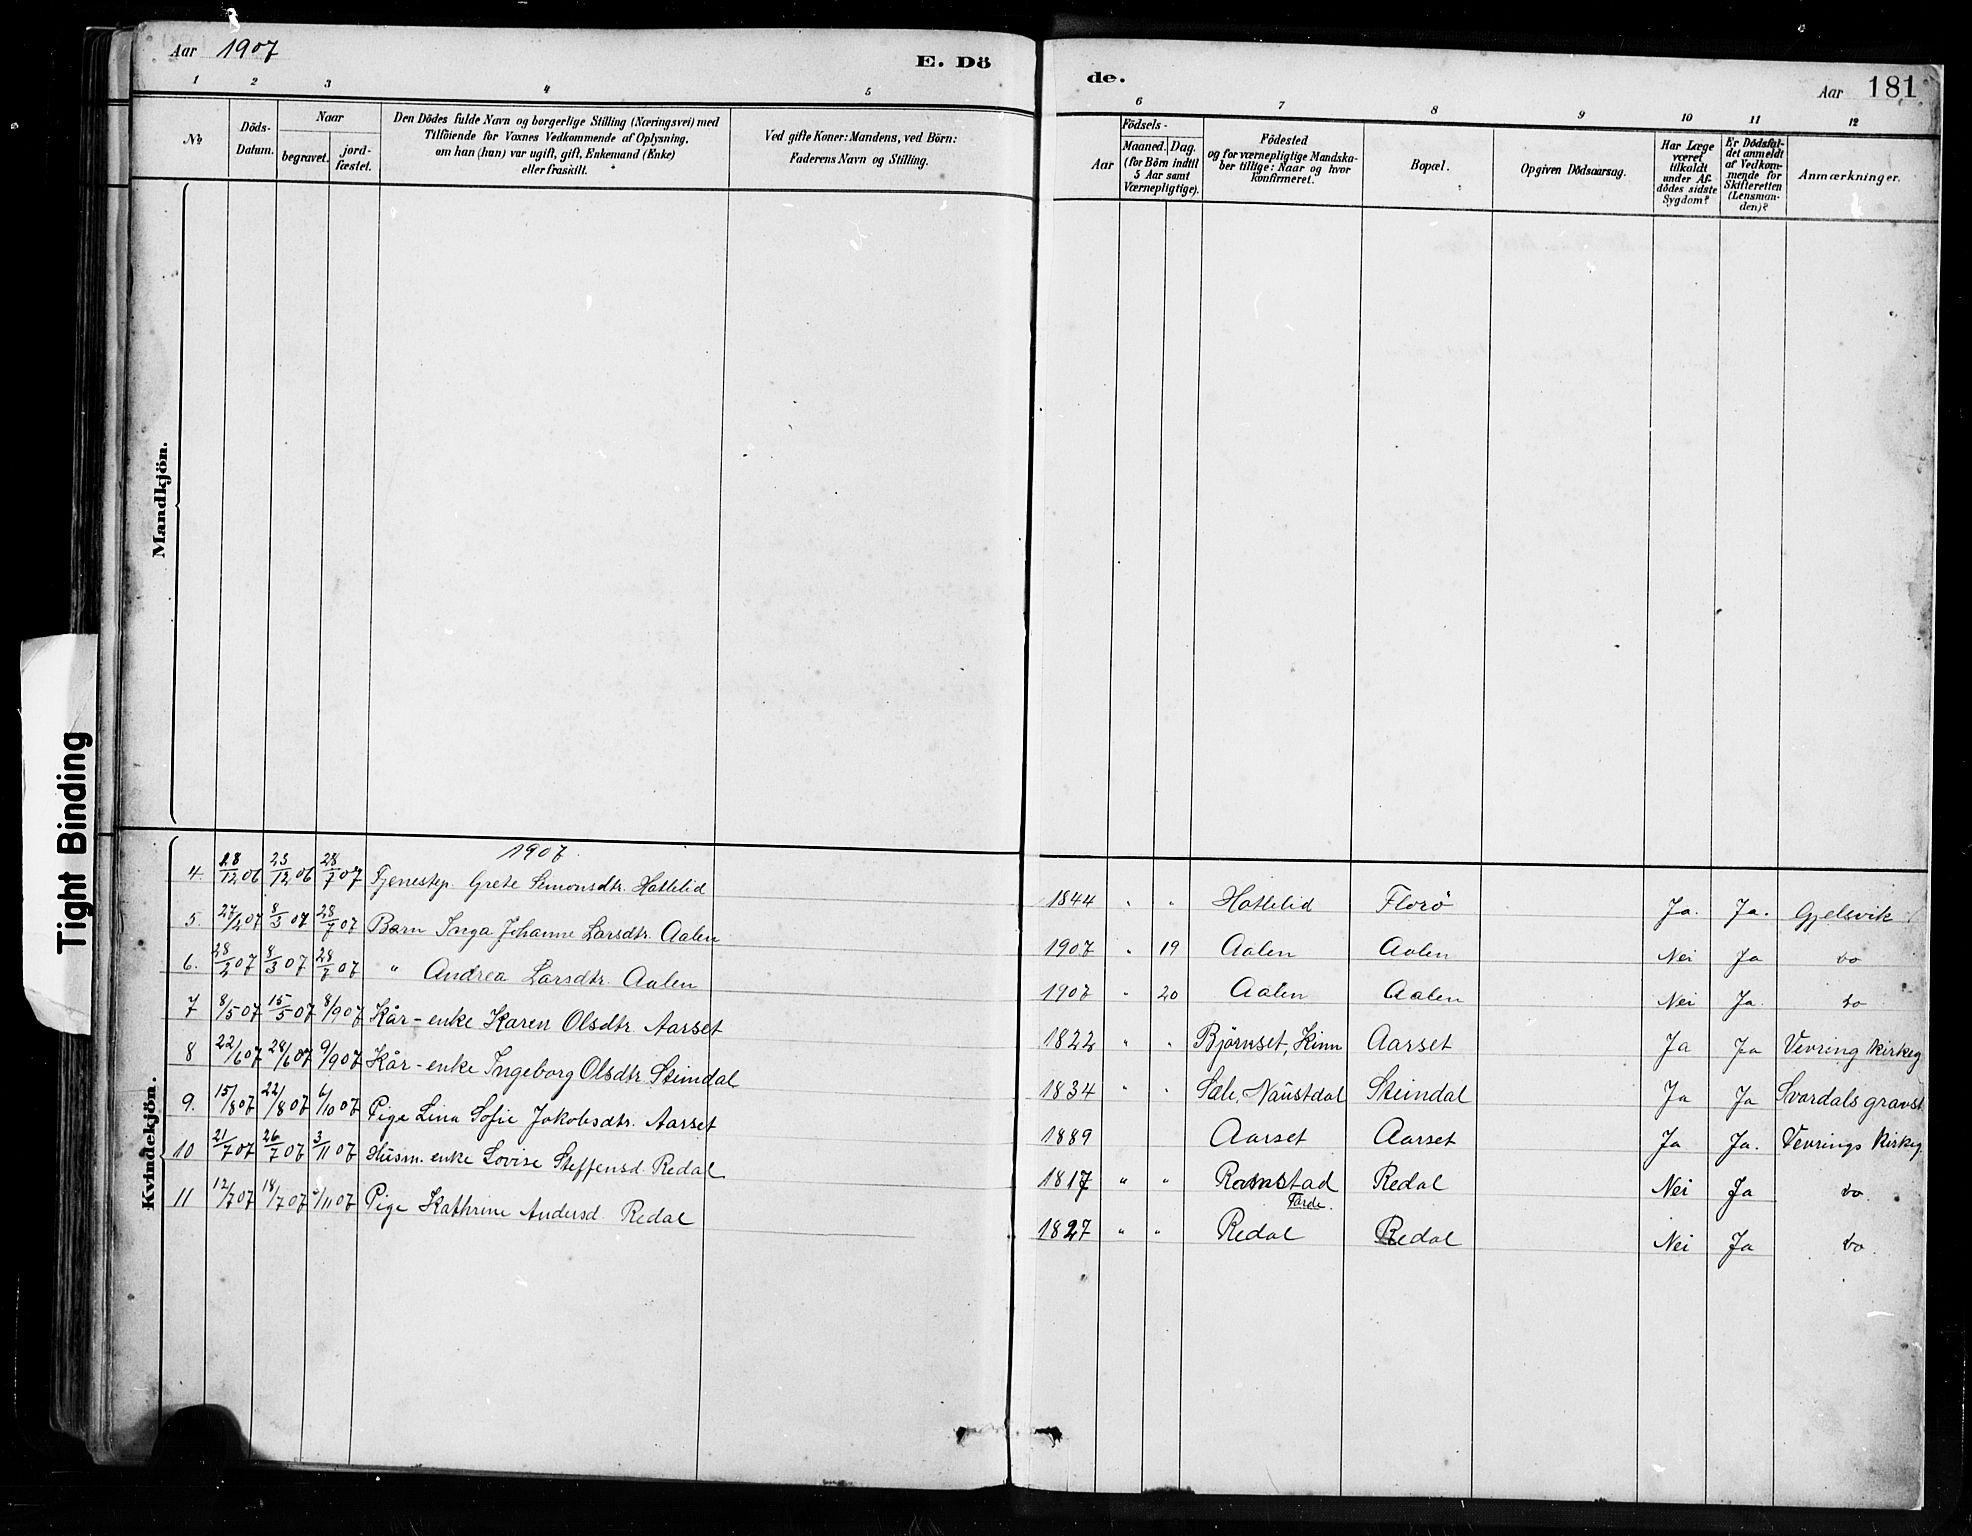 Aar 1907
E. Dö
1 2 3 4 5
No
Döds-Datum.
Naar
begravet.
jord-fæstet.
Den Dödes fulde Navn og borgerlige Stilling (Næringsvei) med
Tilföiende for Voxnes Vedkommende af Oplysning,
om han (hun) var ugift, gift, Enkemand (Enke)
eller fraskilt.
Ved gifte Koner: Mandens, ved Börn:
Faderens Navn og Stilling.
Mandkjön.
Kvindekjön.
Tight Binding
1907.
4. 18/12 06 23/12 06 28/7 07 Tjenestep. Grete Simonsdtr. Hatlelid
5. 27/2 07 8/3 07 28/7 07 Barn Inga Johanne Larsdtr. Aalen
6. 28/2 07 8/3 07 28/7 07 " Andrea Larsdtr. Aalen
7 8/5 07 15/5 07 8/9 07 Kår-enke Karen Olsdtr. Aarset
8 22/6 07 28/6 07 9/9 07 Kår-enke Ingeborg Olsdtr. Steindal
9. 15/8 07 22/8 07 6/10 07 Pige Lina Sofie Jakobsdtr. Aarset
10 21/7 07 26/7 07 3/11 07 Husm. enke Lovise Steffensd. Redal
11 12/7 07 18/7 07 /11 07 Pige Kathrine Andersd. Redal
de.
Aar 181
6 7 8 9 10 11 12
Födsels-
Aar
Maaned.
Dag.
(for Börn indtil
5 Aar samt
Værnepligtige).
Födested
og for værnepligtige Mandska-
ber tillige: Naar og hvor
konfirmeret.
Bopæl.
Opgiven Dödsaarsag.
Har Læge
været
tilkaldt
under Af-
dödes sidste
Sygdom?
Er Dödsfal-
det anmeldt
af Vedkom-
mende for
Skifteretten
(Lensman-
den)?
Anmærkninger.
1844 " " Hatlelid Florö Ja. Ja. Gjelsvik
1907 " 19 Aalen Aalen Nei Ja do
1907 " 20 Aalen Aalen Nei Ja. do
1822 " " Björnset, Kinn Aarset Ja Ja Vevring kirkeg
1834 " " Sæle, Naustdal Steindal Ja Ja Svardals gravst
1889 Aarset Aarset Ja Ja. Vevrings kirkeg
1817 " " Ramstad Förde. Redal Nei Ja do.
1827 " " Redal Redal Nei Ja do.